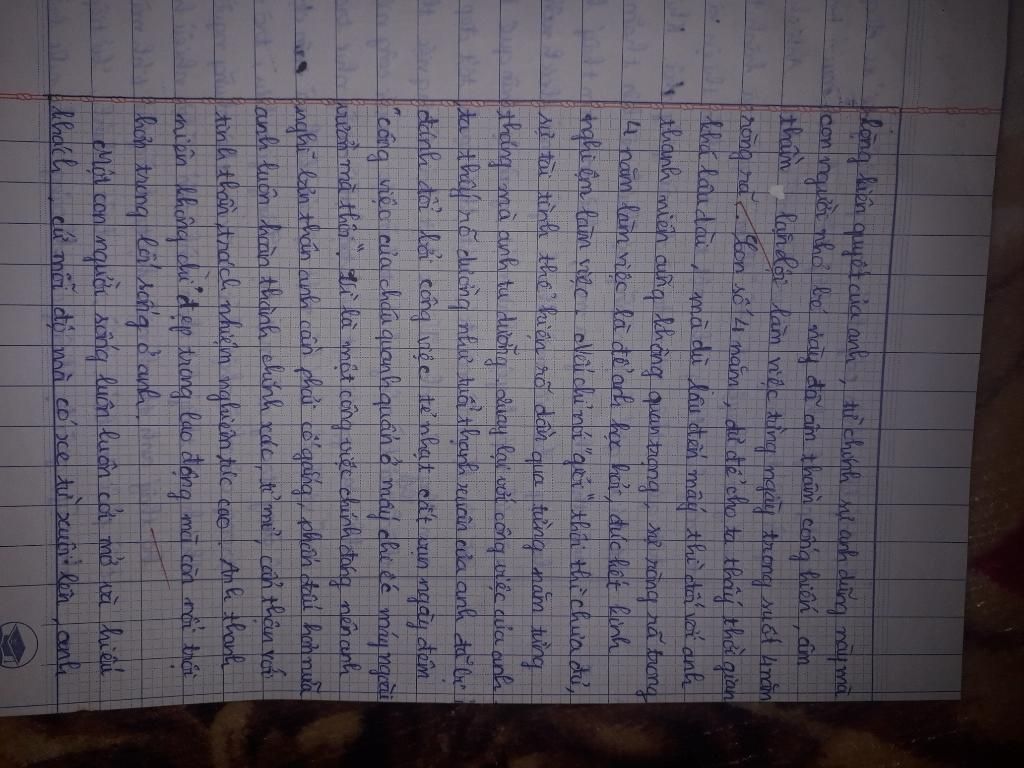 bồng liên quyết của anh, từ chính sự anh dũng này mà
con người nhỏ bé này đã âm thầm cống hiến, âm
thầm lặn lội làm việc từng ngày trong suốt 4 năm
ròng rã. Con số 4 năm, đủ để cho ta thấy thời gian
khá lâu dài, mà dù lâu đến mấy thì đối với anh
thanh niên cũng không quan trọng, sự ròng rã trong
4 năm làm việc là để anh học hỏi, đúc kết kinh
nghiệm làm việc. Nếu chỉ nói "giỏi" thôi thì chưa đủ,
sự tài tình thể hiện rõ dần qua từng năm từng
tháng mà anh tu dưỡng. Quay lại với công việc của anh
ta thấy rõ dường như tuổi thanh xuân của anh đã bị
đánh đổi bởi công việc tẻ nhạt cắt xén ngày đêm
"công việc của cháu quanh quẩn ở mấy chiếc máy ngoài
vườn mà thôi". Vì là một công việc chính đáng nên anh
nghĩ bản thân anh cần phải cố gắng, phấn đấu hơn nữa
anh luôn hoàn thành chính xác, tỉ mỉ, cẩn thận với
tinh thần trách nhiệm nghiêm túc cao. Anh thanh
niên không chỉ đẹp trong lao động mà còn nổi trội
hơn trong lối sống ở anh.
Một con người sống luôn luôn cởi mở và hiếu
khách, cứ mỗi độ mà có xe từ xuôi lên, anh